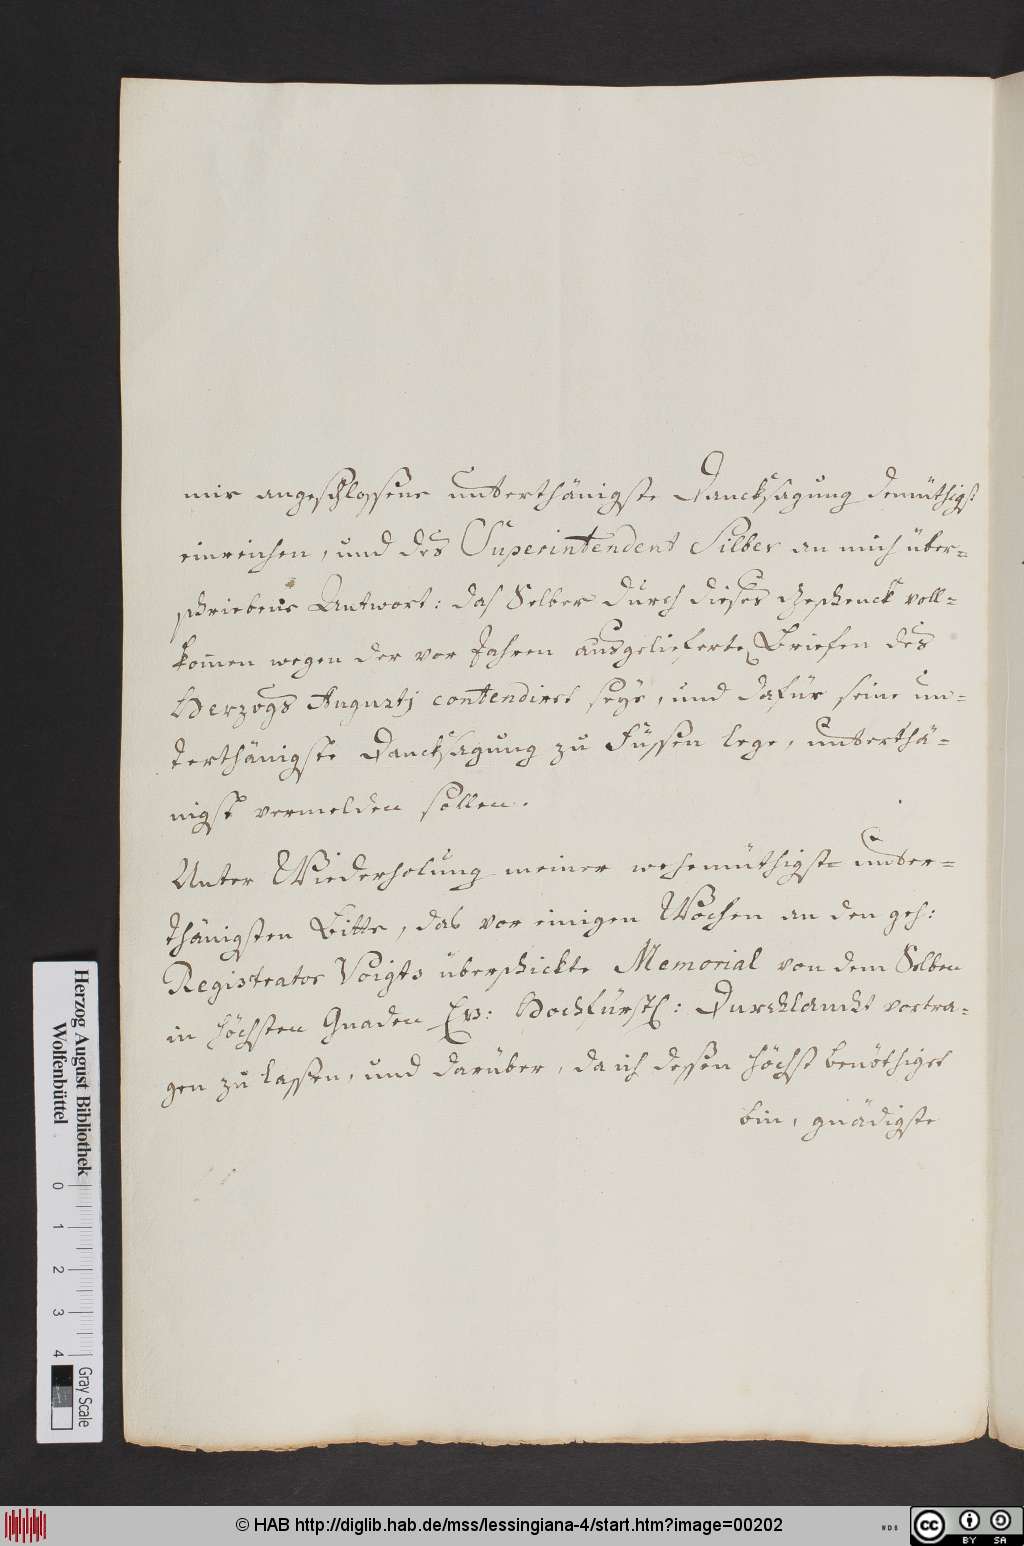 mir angeschlossene unterthänigste Dancksagung demüthigst
einreichen, und des Superintendent Silber an mich über-
schriebene Antwort: daß Selber durch dieses Geschenck voll-
kom̄en wegen der vor Jahren ausgelieferte Briefen des
Herzogs Augustj contendiret seye, und dafür seine un-
terthänigste Dancksagung zu Füssen lege, unterthä-
nigst vermelden sollen.
Unter Wiederholung meiner wehemüthigst- unter-
thänigsten Bitte, das vor einigen Wochen an den geh:
Registrator Voigts überschickte Memorial von dem Selben
in höchsten Gnaden Ew: Hochfürstl: Durchlaucht vortra-
gen zu lassen, und darüber, da ich dessen höchst benöthiget
bin, gnädigste
Herzog August Bibliothek
Wolfenbüttel
0 1 2 3 4
Gray Scale
© HAB http://diglib.hab.de/mss/lessingiana-4/start.htm?image=00202
WDB
cc BY SA